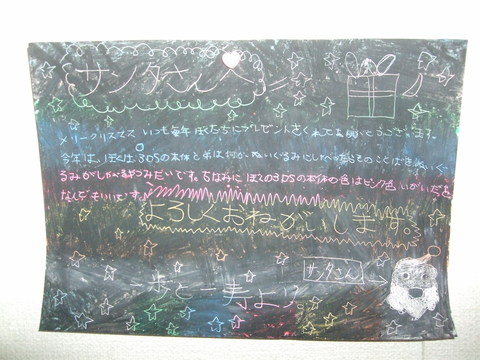 サンタさんへ
メリークリスマス いつも毎年ぼくたちにプレゼントをくれてありがとうございます。
今年は、ぼくは、3DSの本体と弟は何か、ぬいぐるみにしゃべったらそのことばをぬいぐ
るみがしゃべるやつみたいです。ちなみにぼくの3DSの本体の色はピンク色いがいだったら
なんでもいいです。
よろしくおねがいします。
サンタさん
歩と一寿より